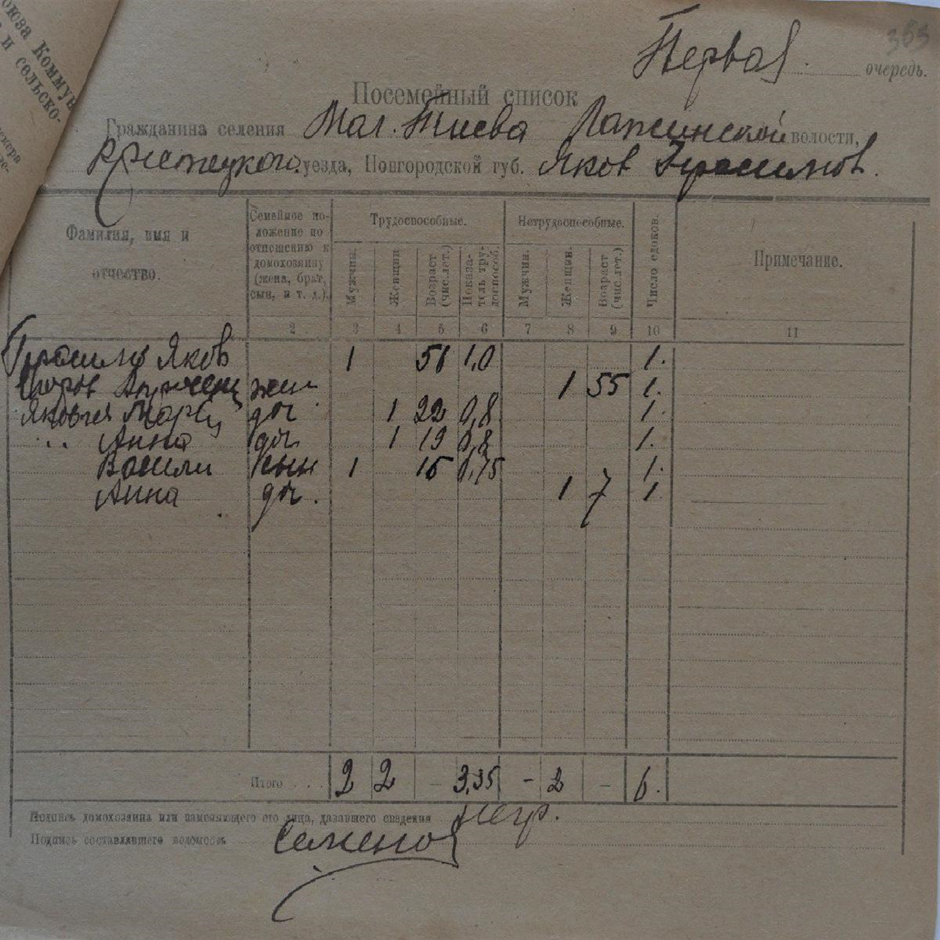 оюза Коммун
и сельско-
Первая очередь.
Посемейный список
Гражданина селения Мал. Тиева волости,
уезда, Новгородской губ. Яков Герасимов.
Фамилия, имя и отчество.
Семейное положение по отношению к домохозяину (жена, брат, сын, и т. д.).
Трудоспособные.
Нетрудоспособные.
Мужчин.
Женщин
Возраст (чис. лет.)
Показатель трудоспособ.
Мужчин.
Женщин.
Возраст (чис. лет.)
Число едоков.
Примечание.
2 3 4 5 6 7 8 9 10 11
Яков 1 1,0 1.
жен 1 55 1.
доч 1 22 0,8 1.
" Анна доч 1 19 0,8 1.
Васили сын 1 0,75 1.
Анна доч. 1 7 1
Итого . . . 2 2 - 3,35 - 2 - 6.
Подпись домохозяина или заменяющего его лица, дававшего сведения негр.
Подпись составлявшего ведомость Семенов